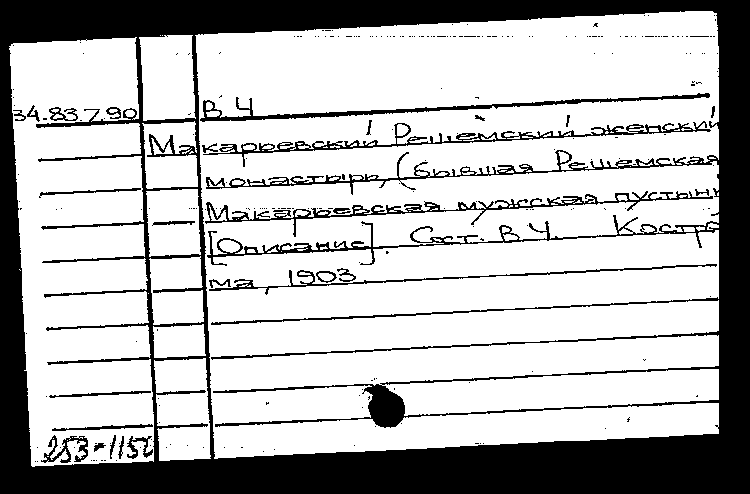 34.83.7.90 В. Ч
Макарьевский Решемский женский
монастырь, (бывшая Решемская
Макарьевская мужская пустынь
[Описание]. Сост. В. Ч. Костро
ма, 1903.
253-115